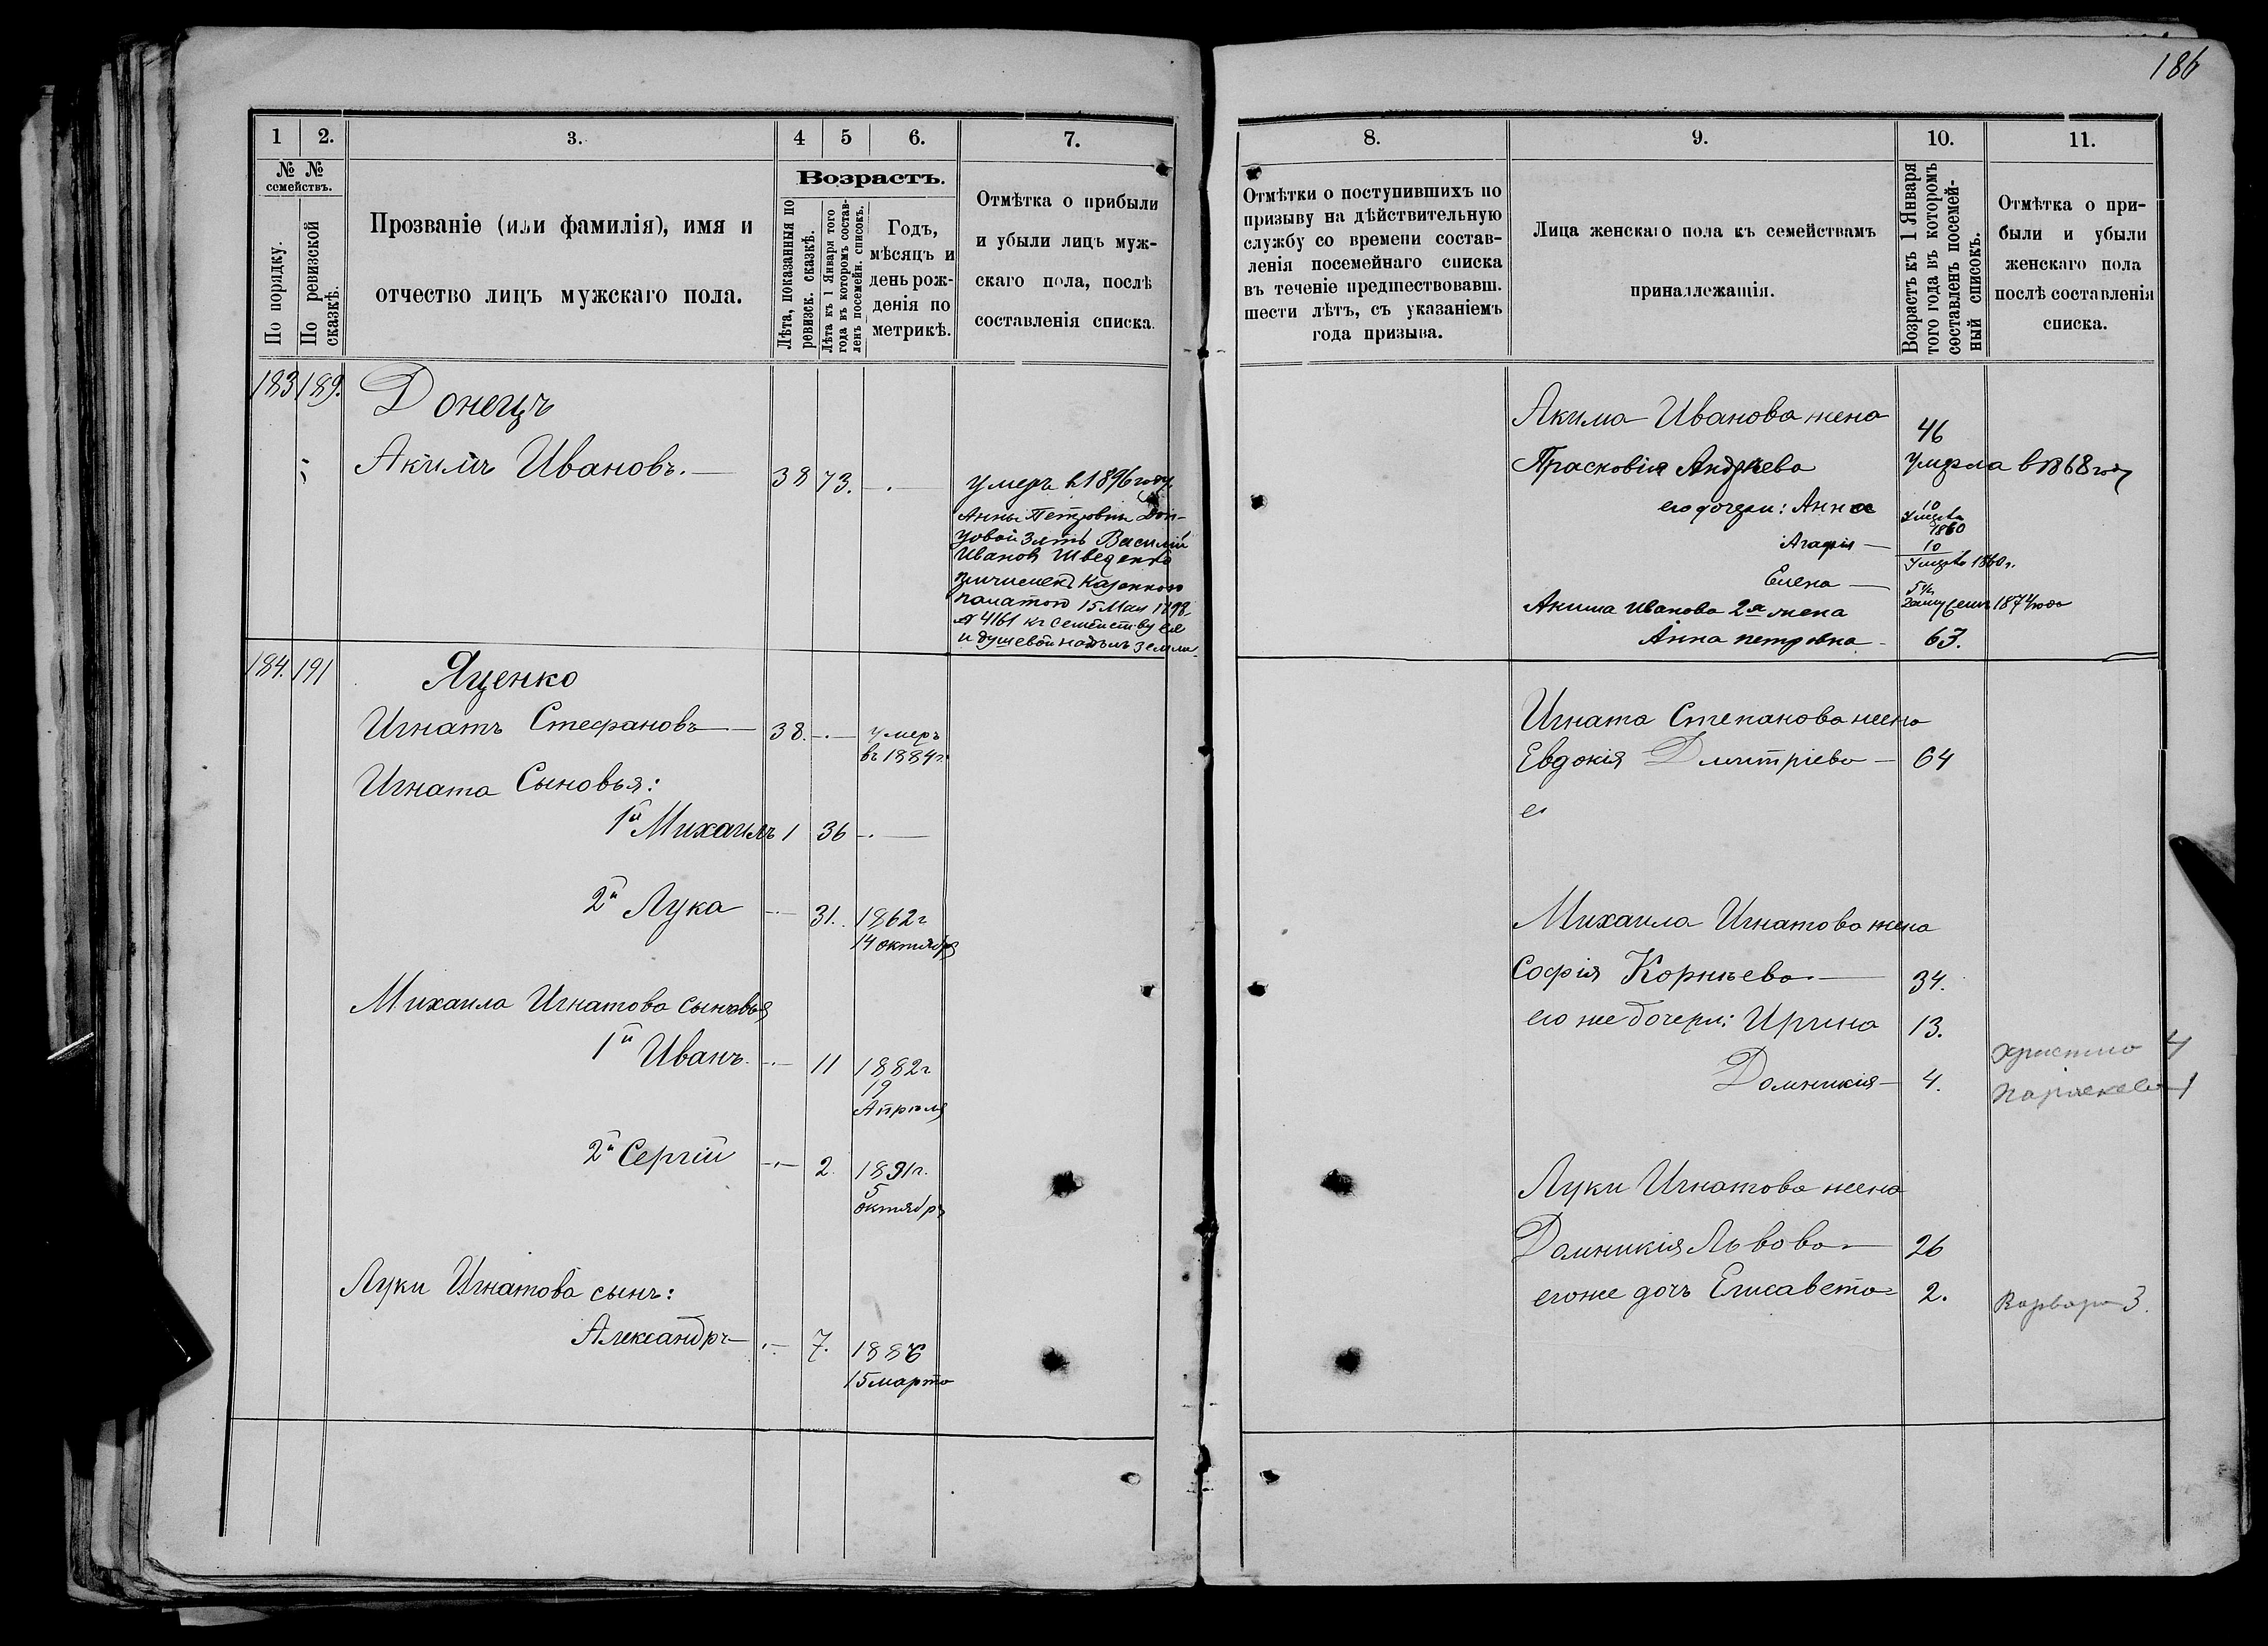 186
1
2.
3.
4
5
6.
7.
№ №
семействъ.
По порядку.
По ревизской
сказкѣ.
Прозваніе (или фамилія), имя и
отчество лицъ мужскаго пола.
Возрастъ.
Лѣта, показанныя по
ревизск. сказкѣ.
Лѣта къ 1 Января того
года въ которомъ состав-
ленъ посемейн. списокъ.
Годъ,
мѣсяцъ и
день рож-
денія по
метрикѣ.
Отмѣтка о прибыли
и убыли лицъ муж-
скаго пола, послѣ
составленія списка.
183
189.
Донецъ
Акимъ Ивановъ.
38
73.
Умеръ в 1896 году
Анны Петровны Дон-
цовой зять Василій
Иванов Шведенко
причислен Казенною
палатою 15 Мая 1898
№ 4161 къ семейству ея
и душевой надѣлъ земли
184.
191
Яценко
Игнатъ Стефановъ
38.
умеръ
въ 1884 г.
Игната Сыновья:
1й Михаилъ
1
36
2й Лука
31.
1862 г
14 октября
Михаила Игнатова сыновья
1й Иванъ
11
1882 г
19
Апрѣля
2й Сергій
2
1891 г.
5
октября
Луки Игнатова сынъ:
Александръ
7.
1886
15 марта
8.
9.
10.
11.
Отмѣтки о поступившихъ по
призыву на дѣйствительную
службу со времени состав-
ленія посемейнаго списка
въ теченіе предшествовавш.
шести лѣтъ, съ указаніемъ
года призыва.
Лица женскаго пола къ семействамъ
принадлежащія.
Возрастъ къ 1 Января
того года въ которомъ
составленъ посемей-
ный списокъ.
Отмѣтка о при-
были и убыли
женскаго пола
послѣ составленія
списка.
Акима Иванова жена
46
Прасковія Андреева
Умерла в 1868 году
его дочери: Анна
10
1860
Агафія
10
1860 г.
Елена
замуж 1874 года
Акима Иванова 2я жена
Анна петровна
63.
Игната Степанова жена
Евдокія Дмитріева
64
Михаила Игнатова жена
Софія Корнѣева
34.
его же дочери: Ирина
13.
Христина 4
Домникія
4.
Параскева 1
Луки Игнатова жена
Домникія Львова
26
его же дочь Елисавета
2.
Варвара 3.